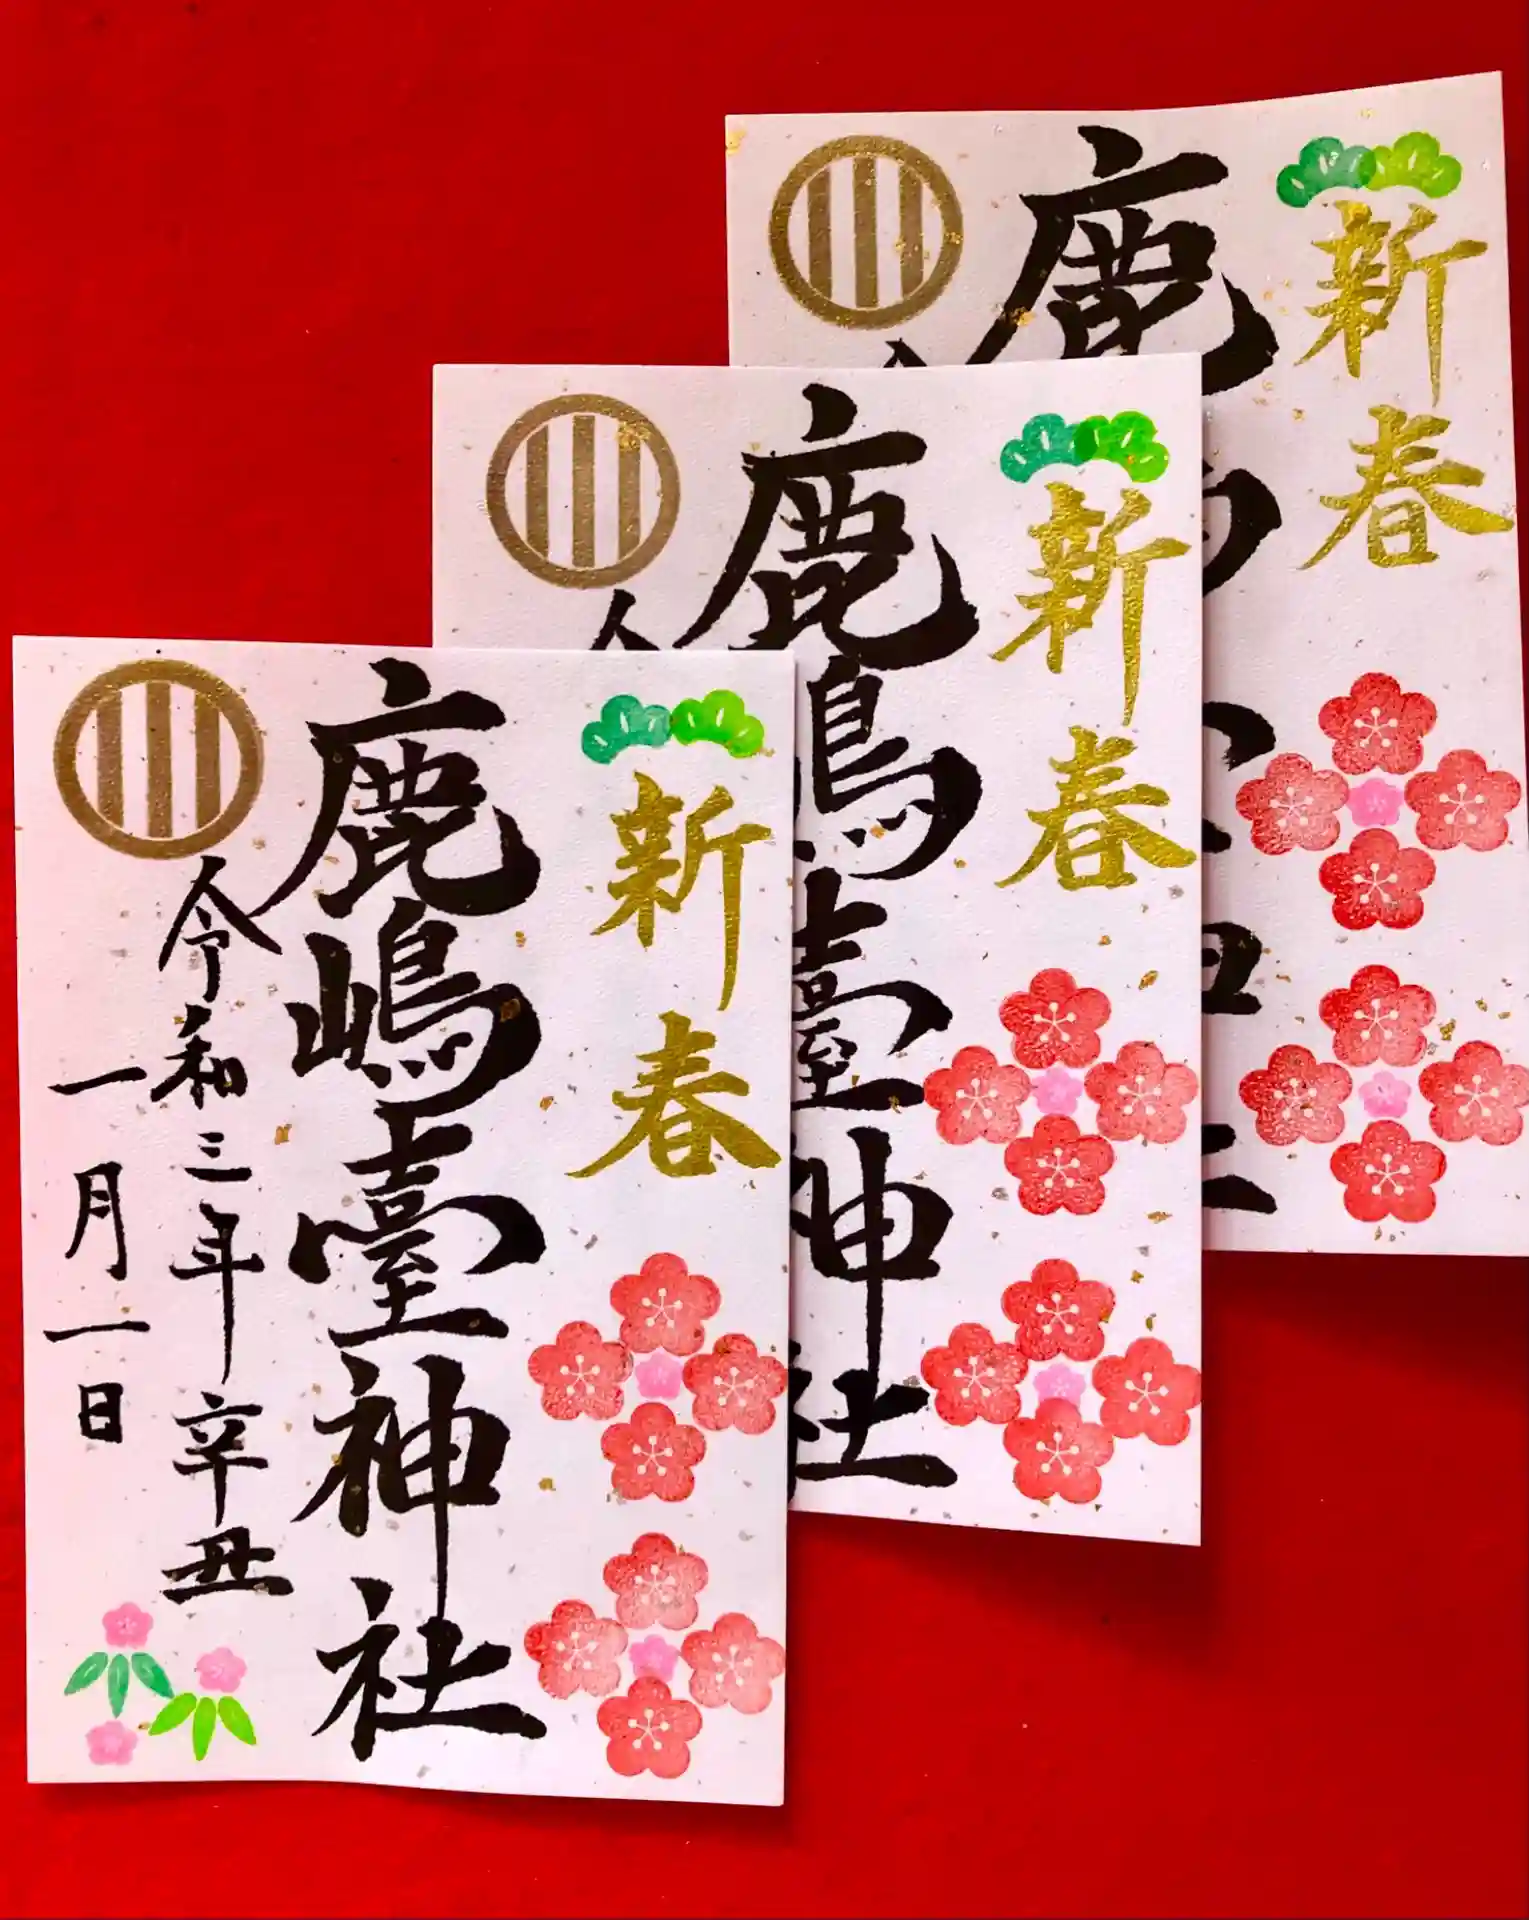 新春
鹿嶋臺神社
令和三年辛丑
一月一日
新春
鹿嶋臺神社
新春
鹿